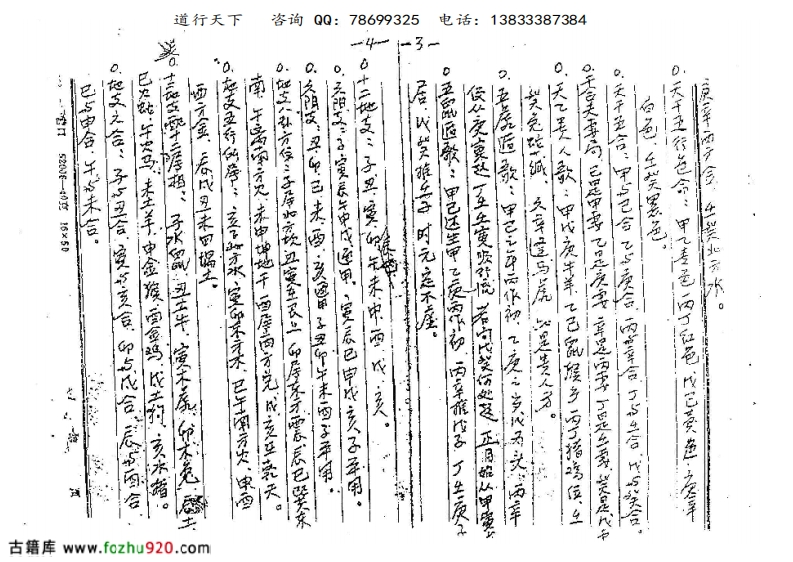 道行天下 咨询 QQ：78699325 电话：13833387384
-3-
庚辛西方金，壬癸北方水。
0.天干五行色合：甲乙青色 丙丁红色 戊己黄色 庚辛
白色，壬癸黑色。
0.天干五合：甲与己合 乙与庚合，丙与辛合 丁与壬合 戊与癸合。
0.干合夫妻局 己是甲妻 乙是庚妻 辛是丙妻 丁是壬妻 癸是戊妻
0.天乙贵人歌：甲戊庚牛羊，乙己鼠猴乡 丙丁猪鸡位 壬
癸兔蛇藏，六辛逢马虎，此是贵人方。
0.五虎遁歌：甲己之年丙作初，乙庚之岁戊为头，丙辛
便从庚寅起 丁壬壬寅顺行流 若问戊癸何处起 正月始从甲寅
0.五鼠遁歌：甲己还生甲 乙庚丙作初，丙辛推戊子 丁壬庚子
居，戊癸 壬子 时元定不虚。
-4-
0.十二地支：子丑寅卯 午未申酉戌亥。
0.六阳支：子寅辰午申戌 寅辰巳申戌亥子
0.六阴支：丑卯巳未酉亥 子丑卯午未酉
0.地支八卦方位：子居北方坎 丑寅 卯居 震 辰巳巽东
南，午 离南方火 未申坤地 酉居西方兑 戌亥 乾天。
0.地支五行 ：亥子北方水 寅卯东方木 巳午南方火 申酉
西方金，辰戌丑未四 土。
0.十二地支配十二属相：子水鼠 丑土牛，寅木虎 卯木兔
巳火蛇 午火马 未土羊，申金猴 酉金鸡 戌土狗，亥水猪。
0.地支六合：子与丑合 寅与亥合，卯与戌合，辰与酉合
巳与申合，午与未合。
16×50
古籍库 www.fozhu920.com